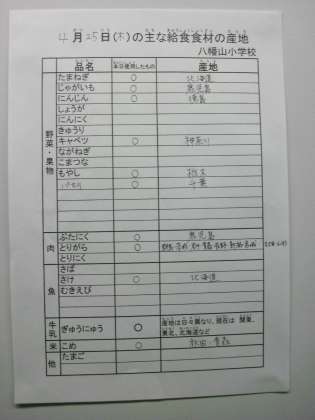 4月25日(木)の主な給食食材の産地
八幡山小学校
品名 本日使用したもの 産地
野菜・果物
たまねぎ ○ 北海道
じゃがいも ○ 鹿児島
にんじん ○ 徳島
しょうが
にんにく
きゅうり
キャベツ ○ 神奈川
ながねぎ
こまつな
もやし ○ 栃木
パセリ ○ 千葉
肉
ぶたにく ○ 鹿児島
とりがら ○
とりにく
魚
さば
さけ ○ 北海道
むきえび
牛乳 ぎゅうにゅう ○ 産地は日々異なり、現在は 関東、
東北、北海道など
米 こめ ○ 秋田・青森
他 たまご